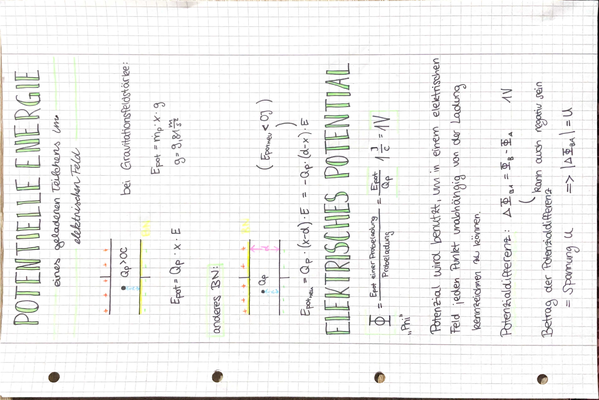 POTENTIELLE ENERGIE
eines geladenen Teilchens im
elektrischen Feld
bei Gravitationsfeldstärke:
Qp > 0C
Epot = Qp · x · E
Epot = mp · x · g
g = 9,81 m/s²
anderes BN:
Qp
d
Epot neu = Qp · (x-d) · E = -Qp · (d-x) · E
(Epot neu < 0J)
ELEKTRISCHES POTENTIAL
Φ = Epot einer Probeladung / Probeladung = Epot / Qp   1 J/C = 1V
"Phi"
Potenzial wird benutzt, um in einem elektrischen
Feld jeden Punkt unabhängig von der Ladung
kennzeichnen zu können.
Potenzialdifferenz: ΔΦBA = ΦB - ΦA   1V
( kann auch negativ sein
Betrag der Potenzialdifferenz
= Spannung U   => |ΔΦBA| = U